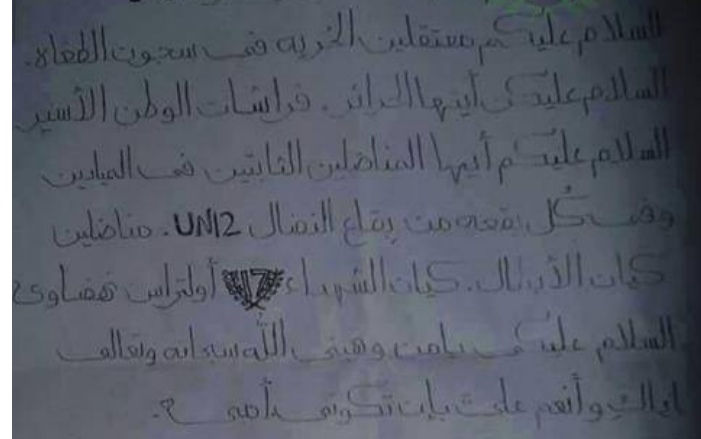 السلام عليكم معتقلين الحريه فى سجون الطغاه.
السلام عليكن أيتها الحرائر. فراشات الوطن الأسير
السلام عليكم أيها المناضلين الثابتين فى الميادين
وفى كُل بقعه من بقاع النضال UN12. مناضلين
كيان الأبطال. كيان الشهداء 17 أولتراس نهضاوى
السلام عليكى يامن وهبنى الله سبحانه وتعالى
اياكِ وأنعم على بإن تكونى أمى ?.